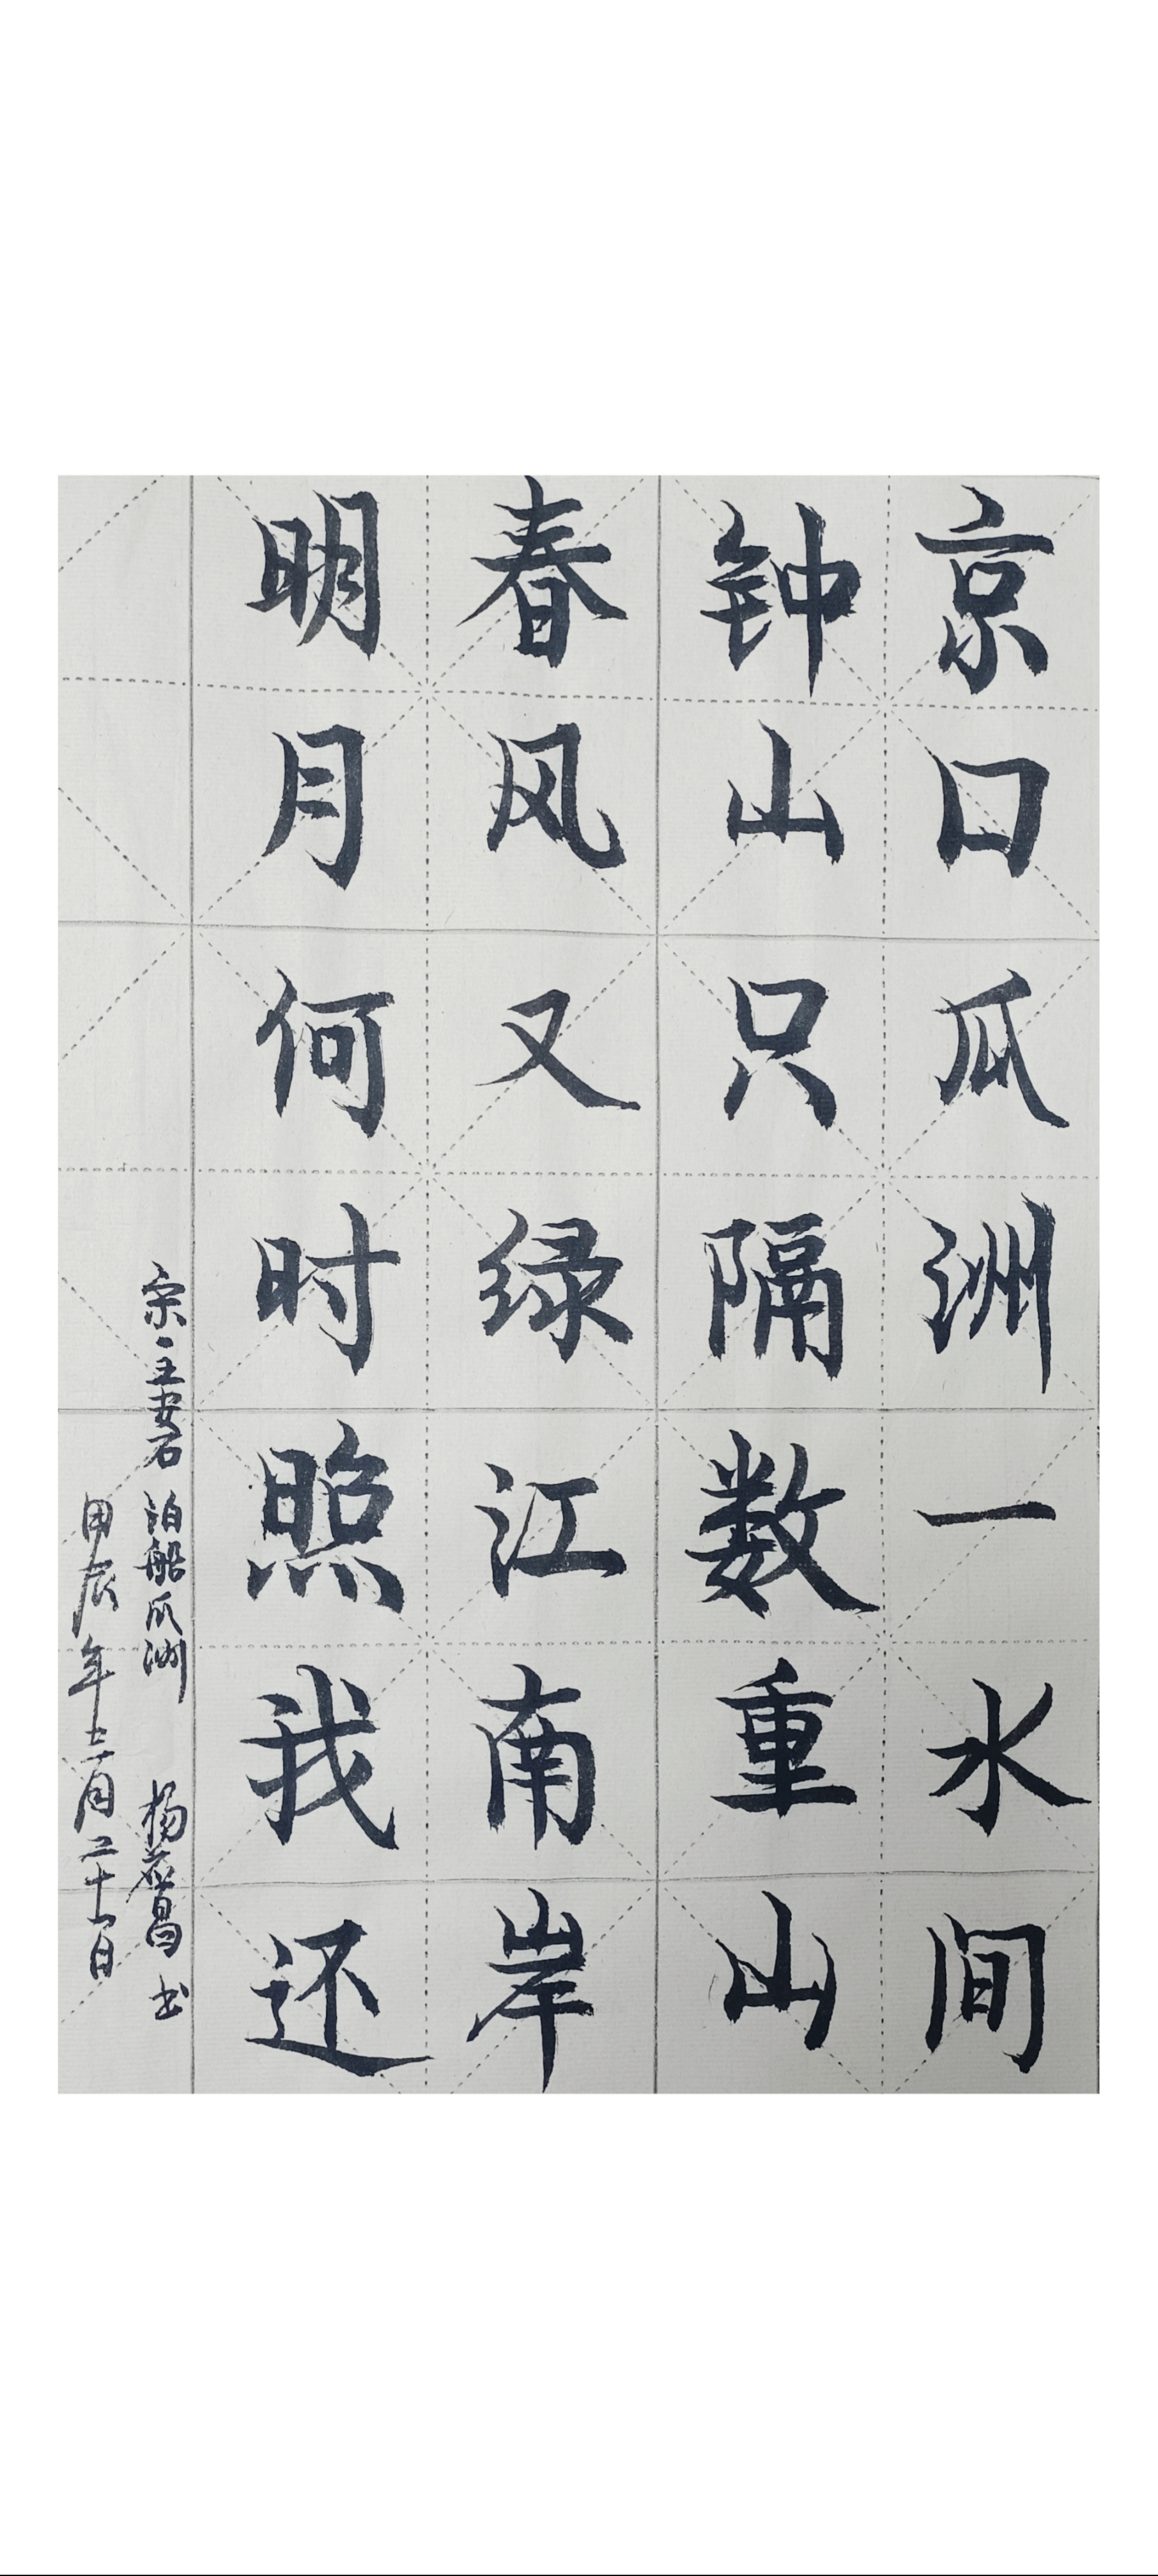 京口瓜洲一水间
钟山只隔数重山
春风又绿江南岸
明月何时照我还
宋·王安石 泊船瓜洲 杨应昌书
甲辰年十二月二十一日